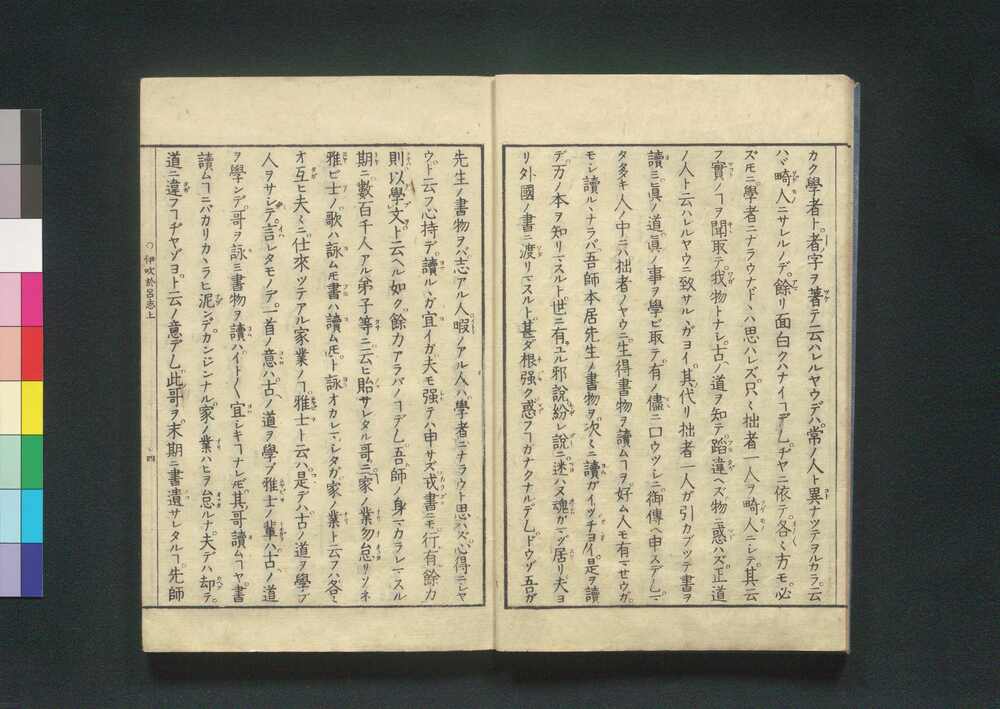 カク學者ト者字ヲ著テ云ハルヽヤウデハ常ノ人ト異ナツテヲルカラ云
ハヾ畸人ニサレルノデ餘リ面白クハナイヿデムヂヤニ依テ各〻方モ必
ズモ學者ニナラウナドヽハ思ハレズ只〻拙者一人ヲ畸人ニシテ其云
フ實ノヿヲ聞取テ我物トナシ古ノ道ヲ知テ蹈違ヘズ物ニ惑ハズ正道
ノ人ト云ハルヽヤウニ致サルヽガヨイ其代リ拙者一人ガ引カブツテ書ヲ
讀ミ眞ノ道眞ノ事ヲ學ビ取テ有ノ儘ニ口ウツシニ御傳ヘ申スデムマ
タ多キ人ノ中ニハ拙者ノヤウニ生得書物ヲ讀ムヿヲ好ム人モ有マセウガ
モシ讀ルヽナラバ吾師本居先生ノ書物ヲ次〻ニ讀ガイツチヨイ是ヲ讀
デ万ノ本ヲ知リマスルト世ニ有ユル邪說紛レ說ニ迷ハヌ魂ガマヅ居リ夫ヨ
リ外國ノ書ニ渡リマスルト甚ダ根强ク惑フヿガナクナルデムドウゾ吾ガ
先生ノ書物ヲバ志アル人暇ノアル人ハ學者ニナラウト思ハズ心得ニシヤ
ウト云フ心持デ讀ルヽガ宜イガ夫モ强テハ申サズ戎書ニモ行有餘力
則以學文ト云ヘル如ク餘力アラバノヿデム吾師ノ身マカラレマスル
期ニ數百千人アル弟子等ニ云ヒ貽サレタル哥ニ家ノ業勿怠リソネ
雅ビ士ノ歌ハ詠ムモ書ハ讀ムモト詠オカレマシタガ家ノ業ト云フハ各〻
オ互ヒ夫〻ニ仕來ツテアル家業ノヿ雅士ト云ハ是デハ古ノ道ヲ學ブ
人ヲサシテ言レタモノデ一首ノ意ハ古ノ道ヲ學ブ雅士ノ輩ハ古ノ道
ヲ學ンデ哥ヲ詠ミ書物ヲ讀ハイト〱宜シキヿナレドモ其哥讀ムヿヤ書
讀ムヿニバカリカヽラヒ泥ンデカンジンナル家ノ業ハヒヲ怠ルナ夫デハ却テ
道ニ違フヿヂヤゾヨト云ノ意デム此哥ヲ末期ニ書遺サレタルヿ先師
○伊吹於呂志上
○四